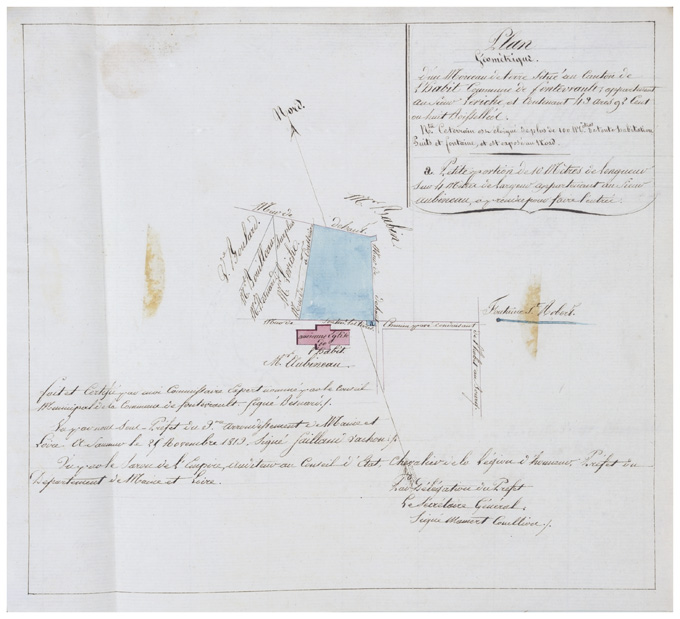 Plan
Géométrique.
d'un Morceau de terre situé au Canton de
l'habit Commune de fontevrault; appartenant
au sieur Leriche et Contenant 42 ares 92 Cent
ou huit Boisselées.
N.ta Ce terrain est eloigné de plus de 100 M.tres de toute habitation
Puits et fontaine, et est exposé au Nord.
a Petite portion de 10 Mètres de longueur
Sur 4 Mètres de largeur appartenant au Sieur
Aubineau, a prendre pour faire l'entrée.
Nord.
M.r Babin.
Mur de
Fontaine S.t Robert.
Chemin pour
ancienne Eglise
de
l'habit.
M.r Aubineau.
fait et Certifié par moi Commissaire Expert nommé par le Conseil
Municipal de la Commune de fontevrault. Signé
Vu par nous Sous-Préfet du 3.me arrondissement de Maine et
Loire. A Saumur le 29 Novembre 1813. Signé
Vu par le Baron de l'Empire, auditeur au Conseil d'Etat, Chevalier de la Légion d'honneur, Préfet du
Département de Maine et Loire.
Par Délégation du Préfet
Le Secrétaire Général,
Signé Mamert Coullion /.